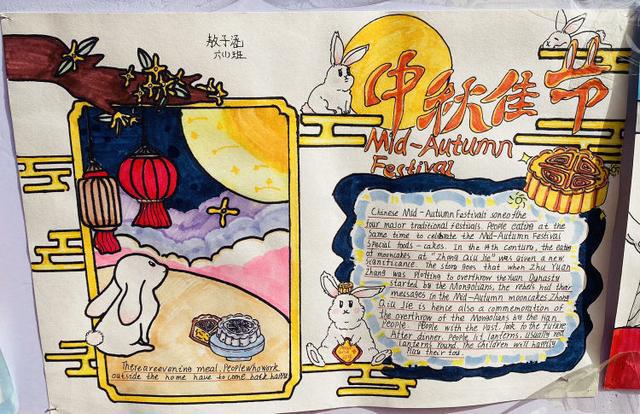 敖子涵
六(1)班
中秋佳节
Mid-Autumn
Festival
Chinese Mid-Autumn Festival is one of the
four major traditional festivals. People eating at the
same time to celebrate the Mid-Autumn Festival
special foods - cakes. In the 14th century, the eating
of mooncakes at "Zhong Qiu Jie" was given a new
significance. The story goes that when Zhu Yuan
Zhang was plotting to overthrow the Yuan Dynasty
started by the Mongolians, the rebels hid their
messages in the Mid-Autumn mooncakes. Zhong
Qiu Jie is hence also a commemoration of
the overthrow of the Mongolians by the Han
People. People with the past, look to the future
After dinner, People lit lanterns, usually red
lanterns round. The children will happily
Play their toy.
There are evening meal. People who work
outside the home have to come back happy